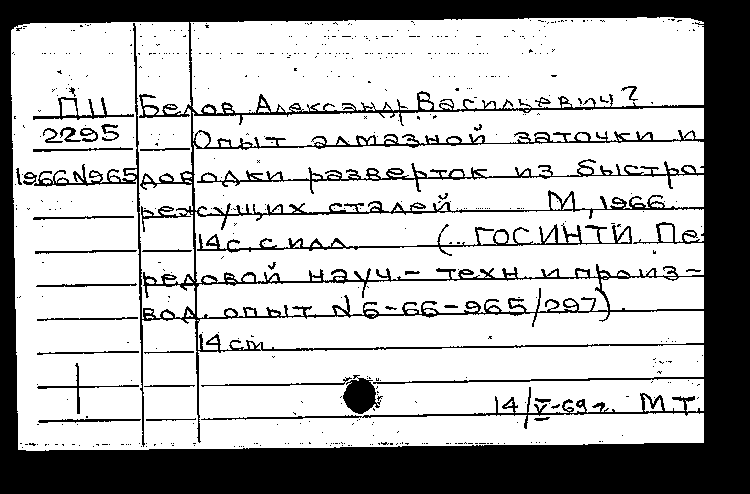 П11 Белов, Александр Васильевич?
2295 Опыт алмазной заточки и
1966 N965 доводки разверток из быстро-
режущих сталей М, 1966.
14 с. с илл. (.. ГОСИНТИ. Пе-
редовой науч.- техн. и произ-
вод. опыт N 6-66-965/297).
14 см.
14/V-69 г. М.Т.